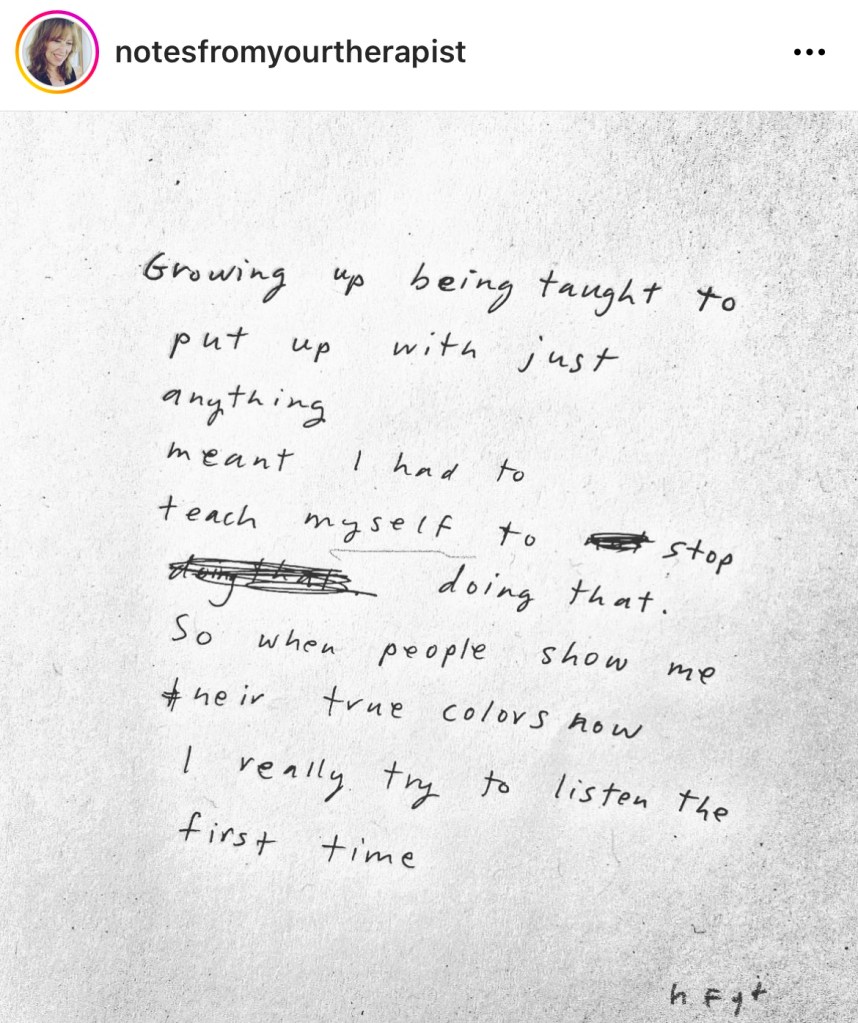 notesfromyourtherapist
Growing up being taught to
put up with just
anything
meant I had to
teach myself to stop
doing that.
So when people show me
their true colors now
I really try to listen the
first time
nfyt